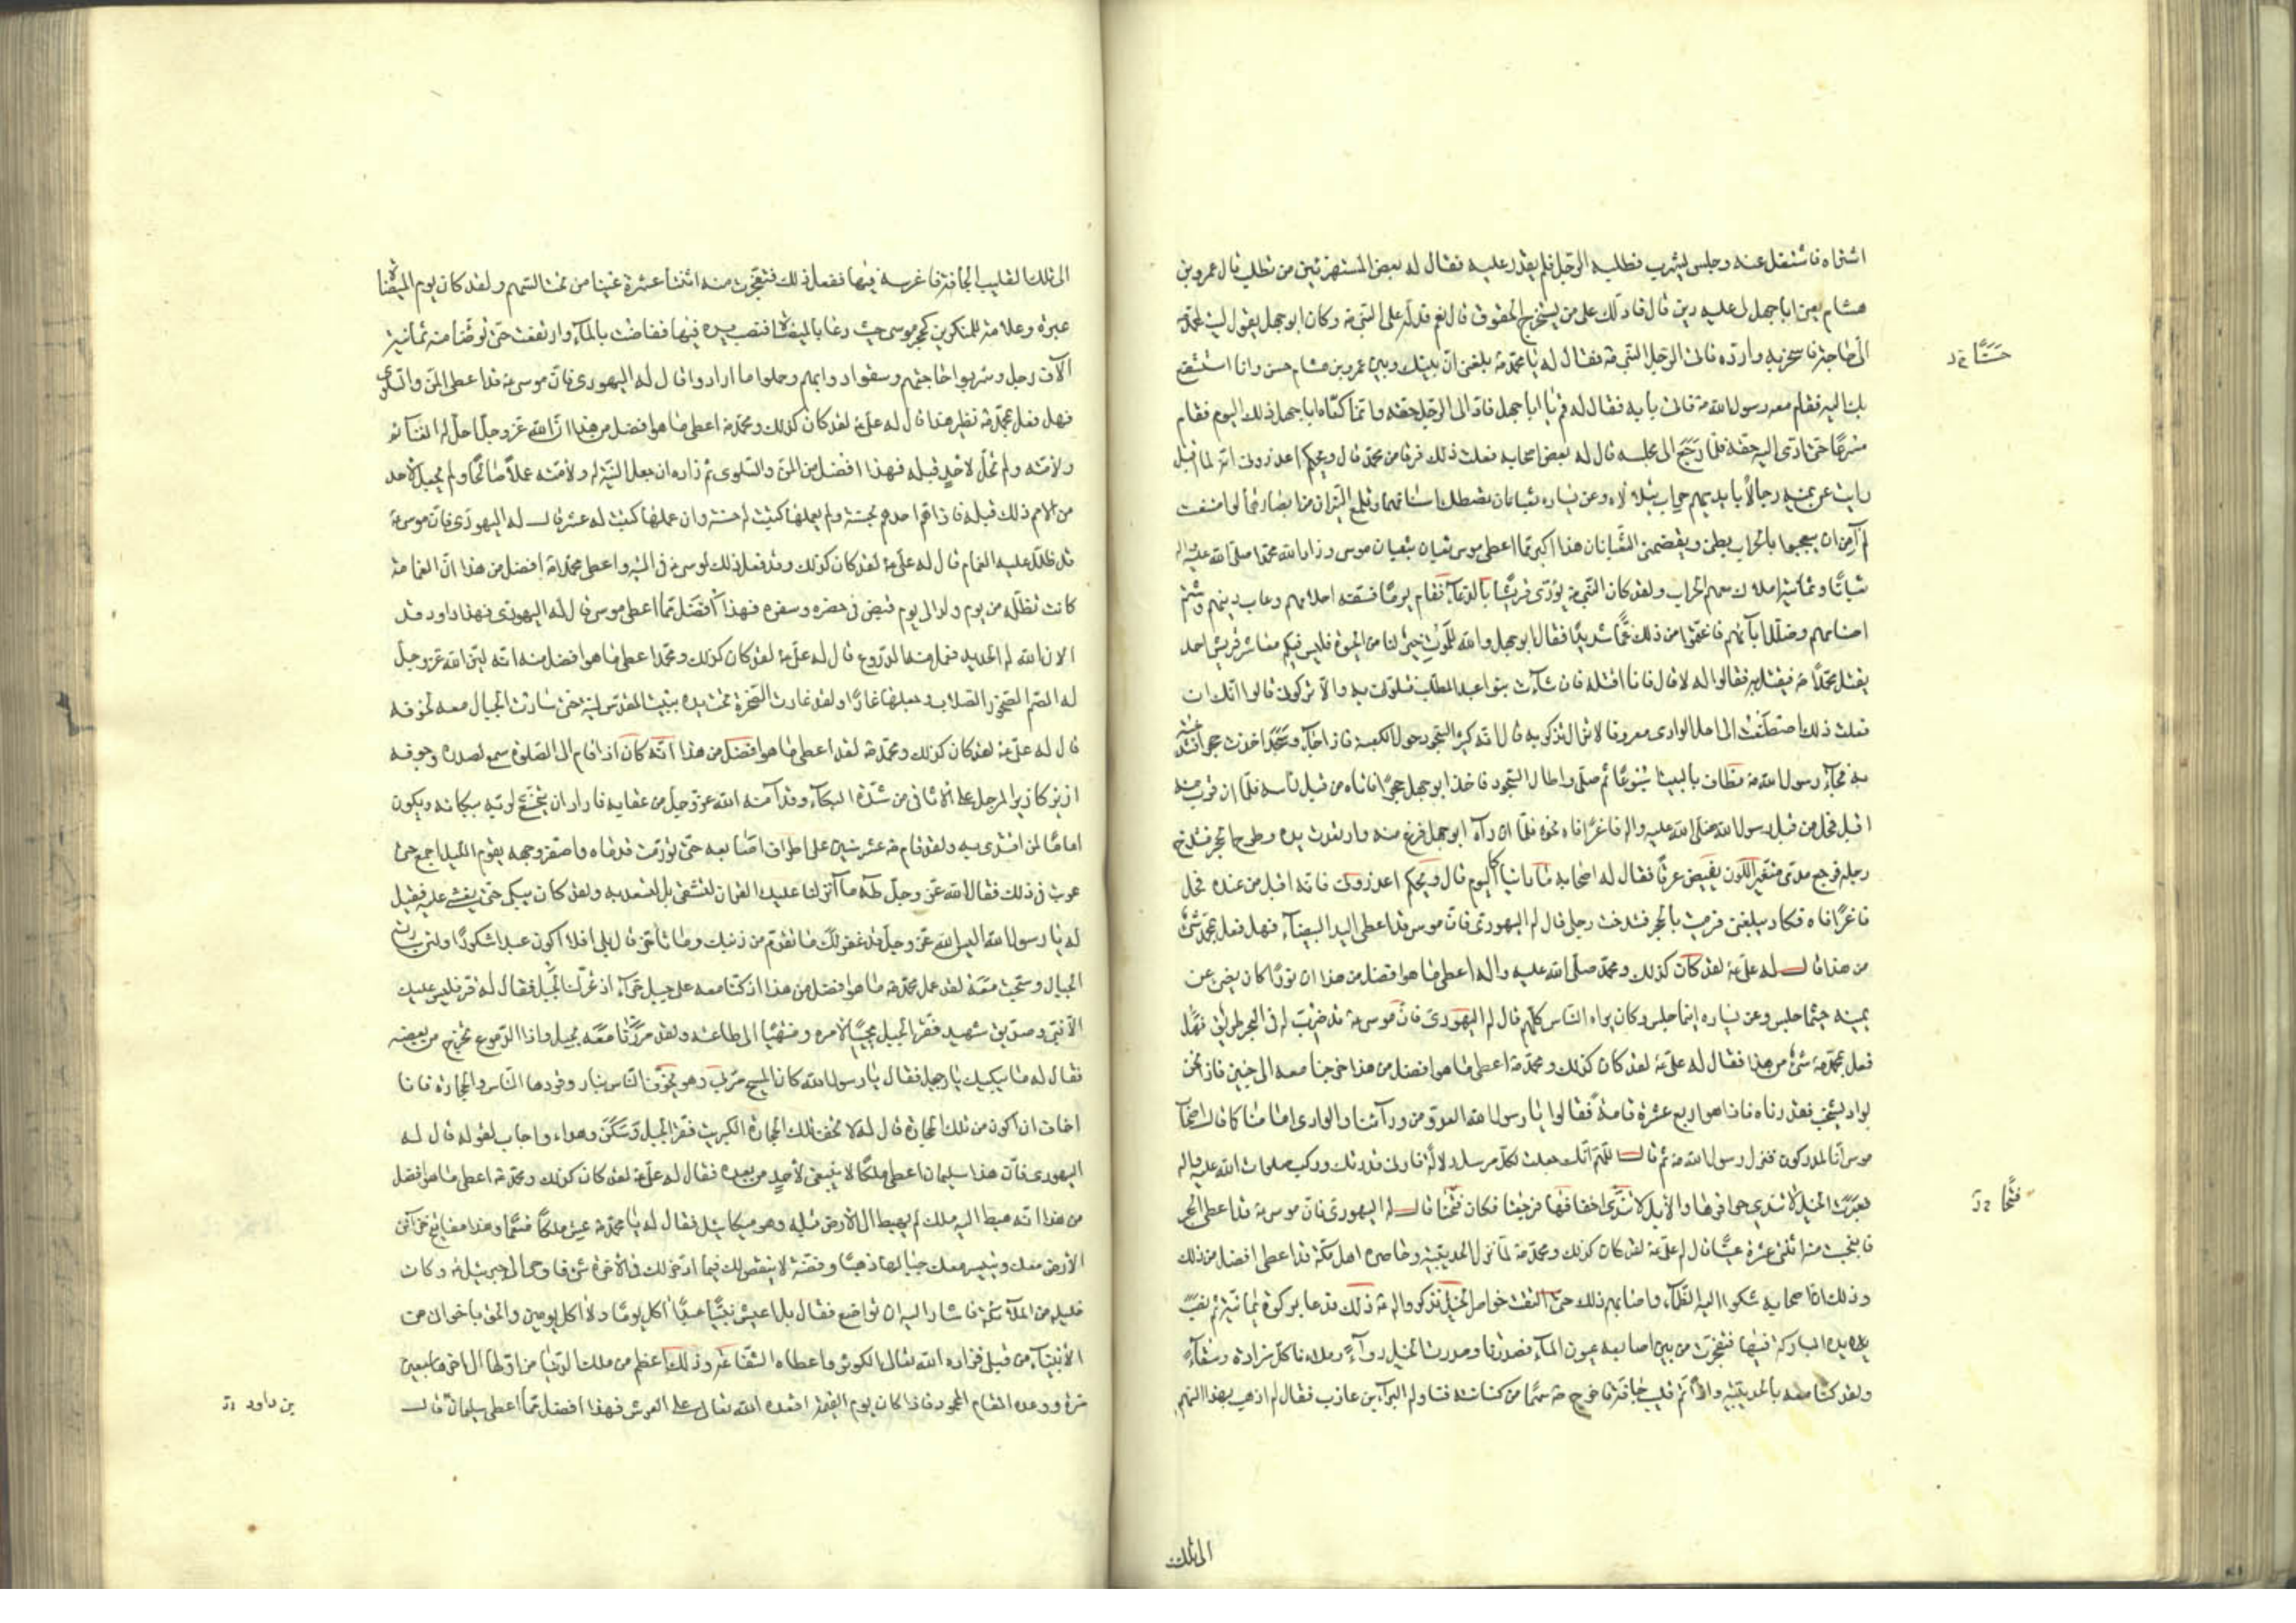 اشتراه فاشتغل عنه وجلس ليشرب فطلبه الرجل فلم يقدر عليه فقال له بعض المستهزئين من تطلب قال عمرو بن
هشام يعني ابا جهل لى عليه دين قال فادلك على من يستخرج الحقوق قال نعم فدله على النبي ص وكان ابو جهل يقول ليت لمحمد
الىّ حاجة فاسخر به وارده فاتى الرجل النبي ص فقال له يا محمد ص بلغنى ان بينك وبين عمرو بن هشام حسن وانا استشفع
حَسَنًا خ د
بك اليه فقام معه رسول الله ص فاتى بابه فقال له قم يا ابا جهل فادّ الى الرجل حقه وانما كناه ابا جهل ذلك اليوم فقام
مسرعًا حتى ادى اليه حقه فلما رجع الى مجلسه قال له بعض اصحابه فعلت ذلك فرقا من محمد قال ويحكم اعذرونى انه لما اقبل
رايت عن يمينه رجالًا بايديهم حراب تتلألأ وعن يساره ثعبانان تصطك اسنانهما وتلمع النيران من ابصارهما لو امتنعت
لم آمن ان يبعجوا بالحراب بطنى ويقضمنى الثعبانان هذا اكبر مما اعطى موسى ثعبان بثعبان موسى وزاد الله محمدا صلى الله عليه وآله
ثعبانًا وثمانية املاك معهم الحراب ولقد كان النبي ص يؤذى قريشًا بالدعاء فقام يومًا فسفه احلامهم وعاب دينهم وشتم
اصنامهم وضلل آبائهم فاغتموا من ذلك غمًّا شديدًا فقال ابو جهل والله للموت خير لنا من الحيوة فليس فيكم معاشر قريش احد
يقتل محمدًا ص فيقتل به فقالوا له لا قال فانا اقتله فان شاءت بنو عبد المطلب قتلونى به والا تركونى قالوا انك ان
فعلت ذلك اصطنعت الى اهل الوادى معروفا لا تزال تذكر به قال انه كثير السجود حول الكعبة فاذا جاء وسجد اخذت حجرا فشدخته
به فجاء رسول الله ص فطاف بالبيت اسبوعًا ثم صلى واطال السجود فاخذ ابو جهل حجرًا فاتاه من قبل رأسه فلما ان قرب منه
اقبل فحل من قبل رسول الله صلى الله عليه وآله فاغرًا فاه نحوه فلما ان رآه ابو جهل فزع منه وارتعدت يده وطرح الحجر فشدخ
رجله فرجع مدمى متغير اللون يفيض عرقًا فقال له اصحابه ما رأيناك كاليوم قال ويحكم اعذرونى فانه اقبل من عنده فحل
فاغرًا فاه فكاد يبلعنى فرميت بالحجر فشدخت رجلى قال له اليهودى فان موسى قد اعطى اليد البيضاء فهل فعل بمحمد شئ
من هذا قال له علي ع لقد كان كذلك ومحمد صلى الله عليه وآله اعطى ما هو افضل من هذا ان نورًا كان يضئ عن
يمينه حيثما جلس وعن يساره اينما جلس وكان يراه الناس كلهم قال له اليهودى فان موسى ع قد ضرب له فى البحر طريق فهل
فعل بمحمد ص شئ من هذا فقال له علي ع لقد كان كذلك ومحمد ص اعطى ما هو افضل من هذا خرجنا معه الى حنين فاذا نحن
بواد يشخب فقدرناه فاذا هو اربع عشرة قامة فقالوا يا رسول الله العدو من ورائنا والوادى امامنا كما قال اصحاب
موسى انا لمدركون فنزل رسول الله ص ثم قال اللهم انك جعلت لكل مرسل دلالة فارنى قدرتك وركب صلوات الله عليه وآله
فعبرت الخيل لا تندى حوافرها والابل لا تندى اخفافها فرجعنا فكان فتحنا قال له اليهودى فان موسى ع قد اعطى الحجر
فتحًا خ د
فانبجست منه اثنتى عشرة عينًا قال له علي ع لقد كان كذلك ومحمد ص لما نزل الحديبية وحاصره اهل مكة قد اعطى افضل من ذلك
وذلك ان اصحابه شكوا اليه الظماء واصابهم ذلك حتى التقت خواصر الخيل فذكروا له ص ذلك فدعا بركوة يمانية ثم نصب
يده المباركة فيها فتفجرت من بين اصابعه عيون الماء فصدرنا وصدرت الخيل رواءً وملأنا كل مزادة وسقاء
ولقد كنا معه بالحديبية واذا ثم قليب جافة فاخرج ص سهمًا من كنانته فناوله البراء بن عازب فقال له اذهب بهذا السهم
الى تلك
الى تلك القليب الجافة فاغرسه فيها ففعل ذلك فتفجرت منه اثنتا عشرة عينا من تحت السهم ولقد كان يوم الميضاة
عبرة وعلامة للمنكرين كحجر موسى حيث دعا بالميضاة فنصب يده فيها ففاضت بالماء وارتفعت حتى توضأ منه ثمانية
آلاف رجل وشربوا حاجتهم وسقوا دوابهم وحملوا ما ارادوا قال له اليهودى فان موسى ع قد اعطى المن والسلوى
فهل فعل بمحمد ص نظير هذا قال له علي ع لقد كان كذلك ومحمد ص اعطى ما هو افضل من هذا ان الله عز وجل احل له الغنائم
ولامته ولم تحل لاحد قبله فهذا افضل من المن والسلوى ثم زاده ان جعل النية له ولامته عملًا صالحًا ولم يجعل لاحد
من الامم ذلك قبله فاذا هم احدهم بحسنة ولم يعملها كتبت له حسنة وان عملها كتبت له عشر قال له اليهودى فان موسى ع
قد ظلل عليه الغمام قال له علي ع لقد كان كذلك وقد فعل ذلك لموسى ع فى التيه واعطى محمد ص افضل من هذا ان الغمامة
كانت تظله من يوم ولد الى يوم قبض فى حضره وسفره فهذا افضل مما اعطى موسى قال له اليهودى فهذا داود قد
الان الله له الحديد فعمل منه الدروع قال له علي ع لقد كان كذلك ومحمد اعطى ما هو افضل منه انه لين الله عز وجل
له الصم الصخور الصلاب وجعلها غارًا ولقد غارت الصخرة تحت يده ببيت المقدس لينة حتى سارت الجبال معه لخوفه
قال له علي ع لقد كان كذلك ومحمد ص لقد اعطى ما هو افضل من هذا انه كان اذا قام الى الصلوة سمع لصدره وجوفه
ازيز كازيز المرجل على الاثافى من شدة البكاء وقد آمنه الله عز وجل من عقابه فاراد ان يتخشع لربه ببكائه ويكون
اماما لمن اقتدى به ولقد قام ص عشر سنين على اطراف اصابعه حتى تورمت قدماه واصفر وجهه يقوم الليل اجمع حتى
عوتب فى ذلك فقال الله عز وجل طه ما انزلنا عليك القران لتشقى بل لتسعد به ولقد كان يبكى حتى يغشى عليه فقيل
له يا رسول الله اليس الله عز وجل قد غفر لك ما تقدم من ذنبك وما تأخر قال بلى افلا اكون عبدا شكورًا ولئن سارت
الجبال وسبحت معه لقد عمل محمد ص ما هو افضل من هذا اذ كنا معه على جبل حراء اذ تحرك الجبل فقال له قر فليس عليك
الا نبى وصديق شهيد فقر الجبل مجيبًا لامره ومنتهيًا الى طاعته ولقد مررنا معه بجبل واذا الدموع تخرج من بعضه
فقال له ما يبكيك يا جبل فقال يا رسول الله كان المسيح مر بى وهو يخوف الناس بنار وقودها الناس والحجارة فانا
اخاف ان اكون من تلك الحجارة قال له لا تخف تلك الحجارة الكبريت فقر الجبل وسكن وهدأ واجاب لقوله قال له
اليهودى فان هذا سليمان اعطى ملكًا لا ينبغى لاحد من بعده فقال له علي ع لقد كان كذلك ومحمد ص اعطى ما هو افضل
من هذا انه هبط اليه ملك لم يهبط الى الارض قبله وهو ميكائيل فقال له يا محمد ص عش ملكًا منعمًا وهذه مفاتيح خزائن
الارض معك ويسير معك جبالها ذهبًا وفضة لا ينقص لك فيما ادخر لك فى الاخرة شئ فاومى الى جبرئيل ع وكان
خليله من الملائكة فاشار اليه ان تواضع فقال بل اعيش نبيًا عبدًا اكل يومًا ولا اكل يومين والحق باخوانى من
الانبياء من قبلى فزاده الله تعالى الكوثر واعطاه الشفاعة وذلك اعظم من ملك الدنيا من اولها الى اخرها سبعين
مرة ووعده المقام المحمود فاذا كان يوم القيمة اقعده الله تعالى على العرش فهذا افضل مما اعطى سليمان قال
بن داود خ د